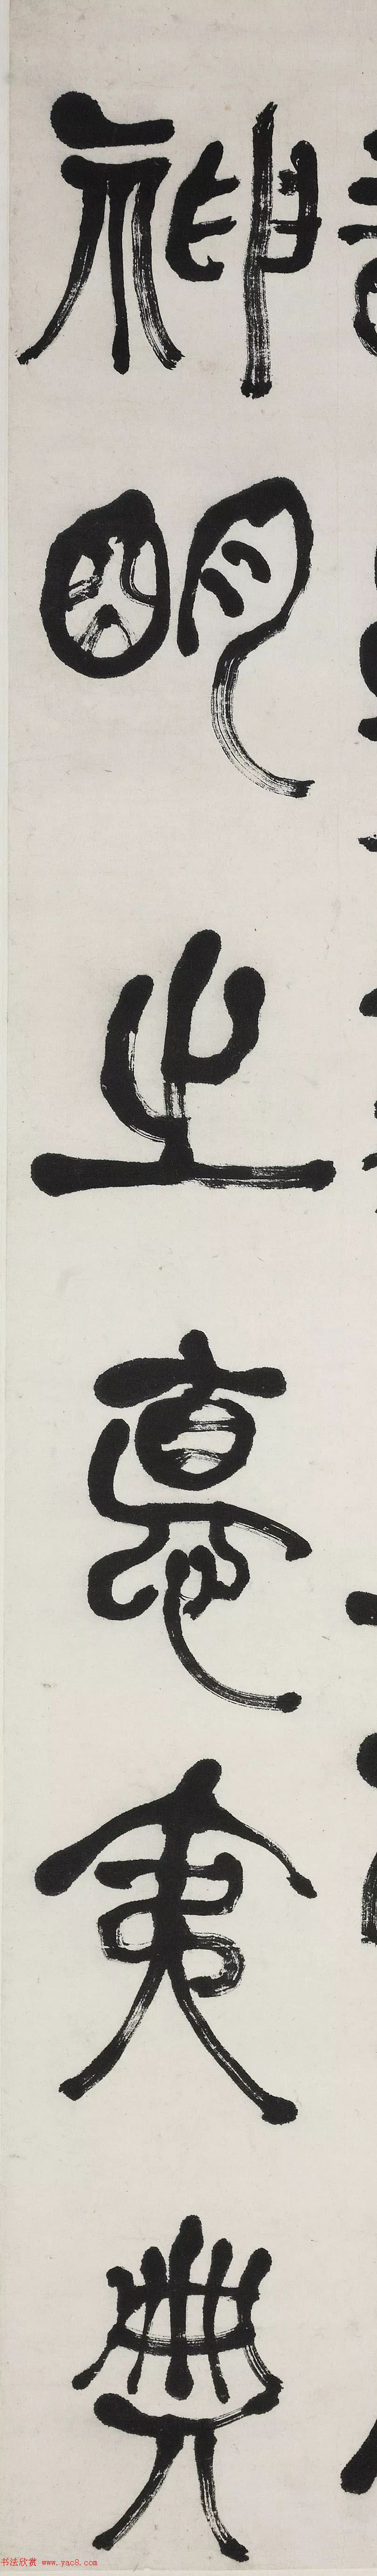 神明之悳夷典
书法欣赏 www.yac8.com